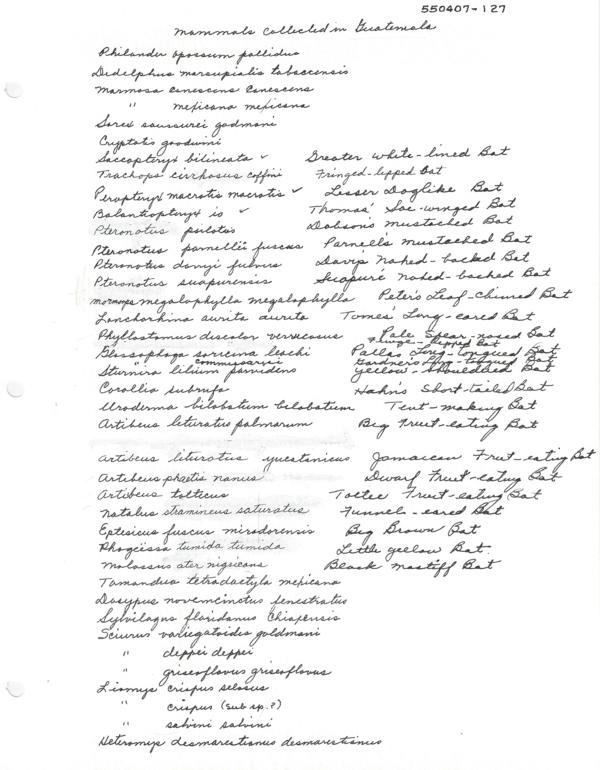 550407-127
Mammals collected in Guatemala
Philander opossum pallidus
Didelphus marsupialis tabascensis
Marmosa canescens canescens
" mexicana mexicana
Sorex saussurei godmani
Cryptotis goodwini
Saccopteryx bilineata ✓ Greater White-lined Bat
Trachops cirrhosus coffini Fringed-lipped Bat
Peropteryx macrotis macrotis ✓ Lesser Doglike Bat
Balantiopteryx io ✓ Thomas' Sac-winged Bat
Pteronotus psilotis Dobson's Mustached Bat
Pteronotus parnellii fuscus Parnell's Mustached Bat
Pteronotus davyi fulvus Davy's Naked-backed Bat
Pteronotus suapurensis Suapuré Naked-backed Bat
Mormoops megalophylla megalophylla Peter's Leaf-chinned Bat
Lonchorhina aurita aurita Tomes' Long-eared Bat
Phyllostomus discolor verrucosus Pale Spear-nosed Bat
Fringe-lipped Bat
Glossophaga soricina leachi Pallas Long-tongued Bat
commissarisi Gardner's Long-tongued Bat
Sturnira lilium parvidens Yellow-Shouldered Bat
Corollia subrufa Hahn's Short-tailed Bat
Uroderma bilobatum bilobatum Tent-making Bat
Artibeus lituratus palmarum Big Fruit-eating Bat
Artibeus lituratus yucatanicus Jamaican Fruit-eating Bat
Artibeus phaetis nanus Dwarf Fruit-eating Bat
Artibeus tolticus Toltec Fruit-eating Bat
Natalus stramineus saturatus Funnel-eared Bat
Eptesicus fuscus miradorensis Big Brown Bat
Rhogëissa tumida tumida Little yellow Bat.
Molossus ater nigricans Black mastiff Bat
Tamandua tetradactyla mexicana
Dasypus novemcinctus fenestratus
Sylvilagus floridanus Chiapensis
Sciurus variegatoides goldmani
" deppei deppei
" griseoflavus griseoflavus
Liomys crispus setosus
" crispus (sub sp.?)
" salvini salvini
Heteromys desmarestianus desmarestianus